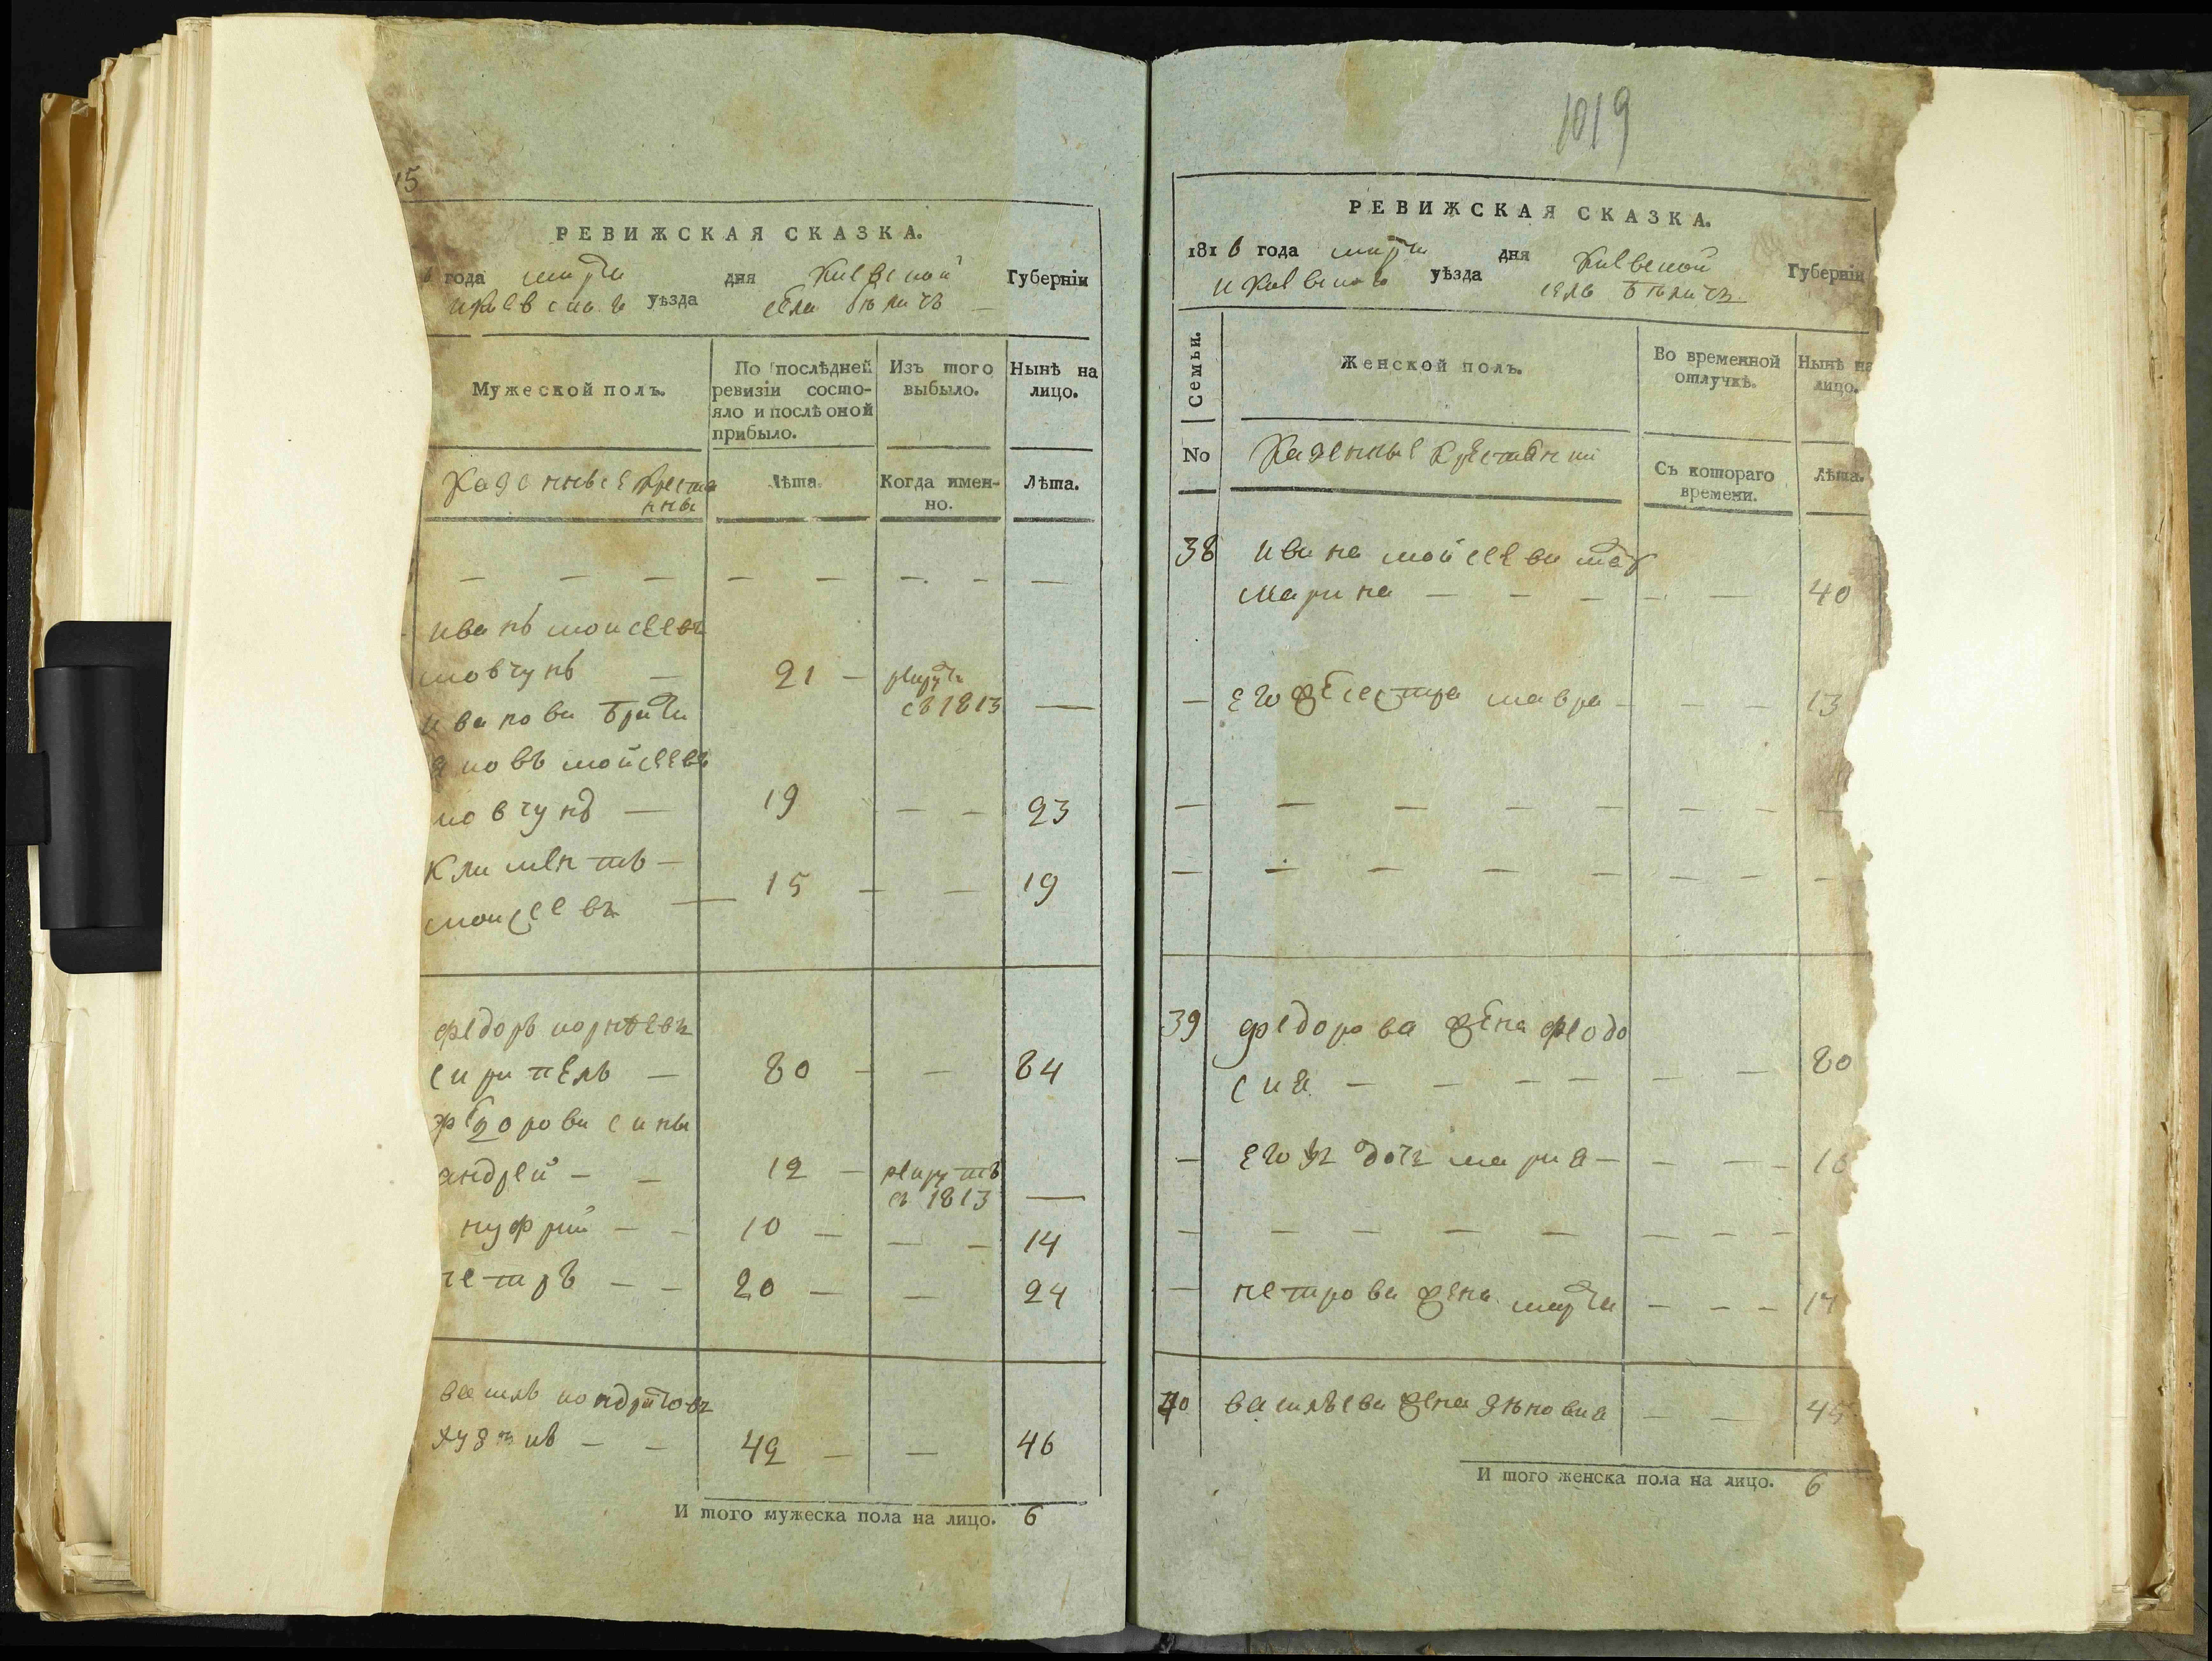 15
РЕВИЖСКАЯ СКАЗКА.
6 года марта дня Киевской Губерніи
и Киевскаго уѣзда села Бѣличъ
Мужеской полъ.
По послѣдней ревизіи состо-
яло и послѣ оной
прибыло.
Изъ того
выбыло.
Нынѣ на
лицо.
Казенные крестя
нны
Лѣта.
Когда имен-
но.
Лѣта.
иванъ моисеевъ
мовчунъ — 21 — рекрутъ
съ 1813 —
ивановы брати
яковъ мойсеевъ
мовчунъ — 19 — — 23
Климентъ —
моисеевъ — 15 — — 19
федоръ корнѣевъ
— 80 — — 84
федорови сины
андрей — — 12 — рекрутъ
съ 1813 —
нуфрий — — 10 — — — 14
петръ — — 20 — — 24
василь кондратовъ
— — 42 — — 46
И того мужеска пола на лицо. 6
1019
РЕВИЖСКАЯ СКАЗКА.
1816 года марта дня Киевской Губерніи
и Киевскаго уѣзда села Бѣличъ
Семьи.
Женской полъ.
Во временной
отлучкѣ.
Нынѣ на
лицо.
No
Казенные крестяни
Съ котораго
времени.
Лѣта.
38 ивана мойсеева мат
марина — — — — — 40
— его же сестра мавра — — — 13
39 федорова жена феодо
сия — — — — — — 80
— его же дочь мария — — — — 16
— петрова жена марта — — — 17
40 васильева жена зѣновия — — 45
И того женска пола на лицо. 6